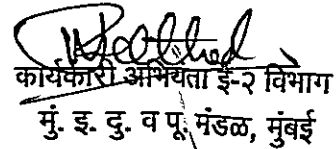 कार्यकारी अभियंता ई-२ विभाग
मुं. इ. दु. व पू. मंडळ, मुंबई